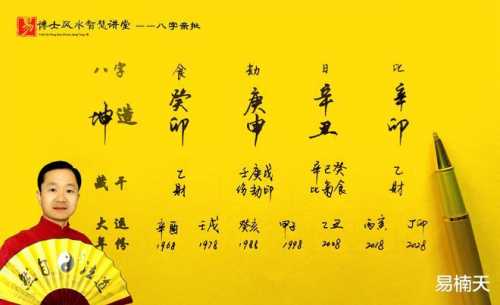 易 博士风水智慧讲堂 ——八字亲批
八字 食 劫 日 比
癸 庚 辛 辛
坤造
卯 申 丑 卯
藏干 乙 壬庚戊 辛己癸 乙
財 伤劫印 比枭食 財
大运 辛酉 壬戌 癸亥 甲子 乙丑 丙寅 丁卯
年份 1968 1978 1988 1998 2008 2018 2028
易楠天